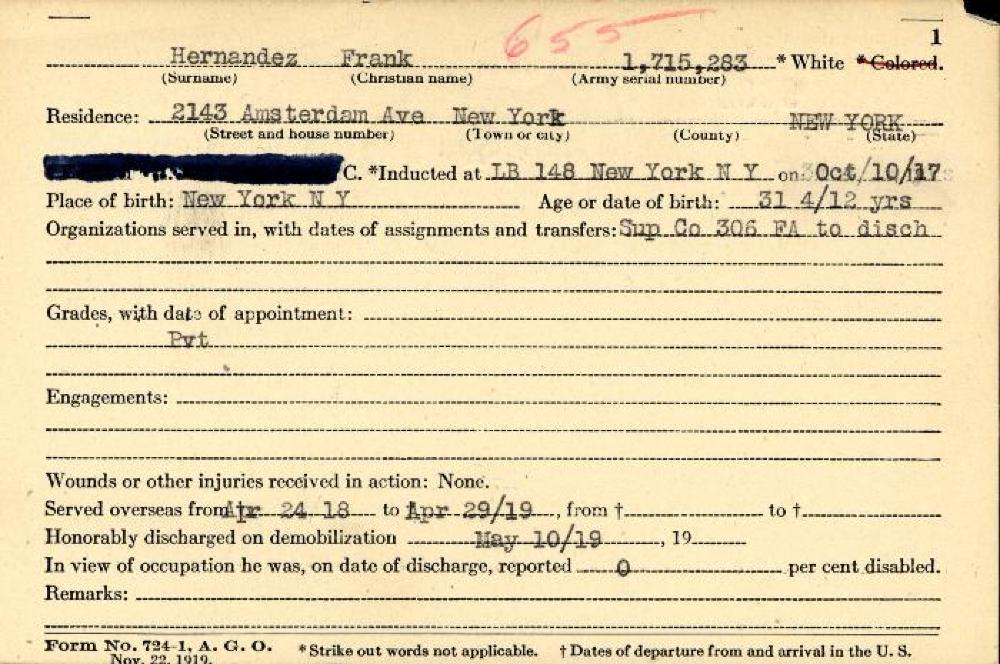 655
1
Hernandez Frank 1,715,283 * White * Colored.
(Surname) (Christian name) (Army serial number)
Residence: 2143 Amsterdam Ave New York NEW YORK
(Street and house number) (Town or city) (County) (State)
C. *Inducted at LB 148 New York N Y on Oct/10/17
Place of birth: New York N Y Age or date of birth: 31 4/12 yrs
Organizations served in, with dates of assignments and transfers: Sup Co 306 FA to disch
Grades, with date of appointment:
Pvt
Engagements:
Wounds or other injuries received in action: None.
Served overseas from Apr 24 18 to Apr 29/19, from † to †
Honorably discharged on demobilization May 10/19, 19
In view of occupation he was, on date of discharge, reported 0 per cent disabled.
Remarks:
Form No. 724-1, A. G. O. * Strike out words not applicable. † Dates of departure from and arrival in the U. S.
Nov. 22, 1919.